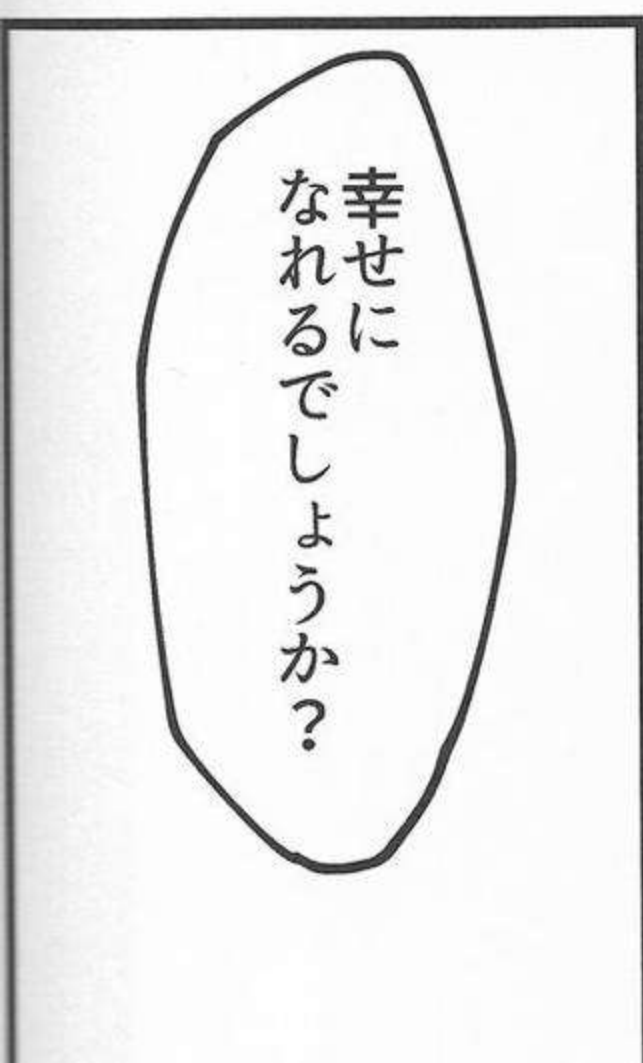 幸せに
なれるでしょうか？